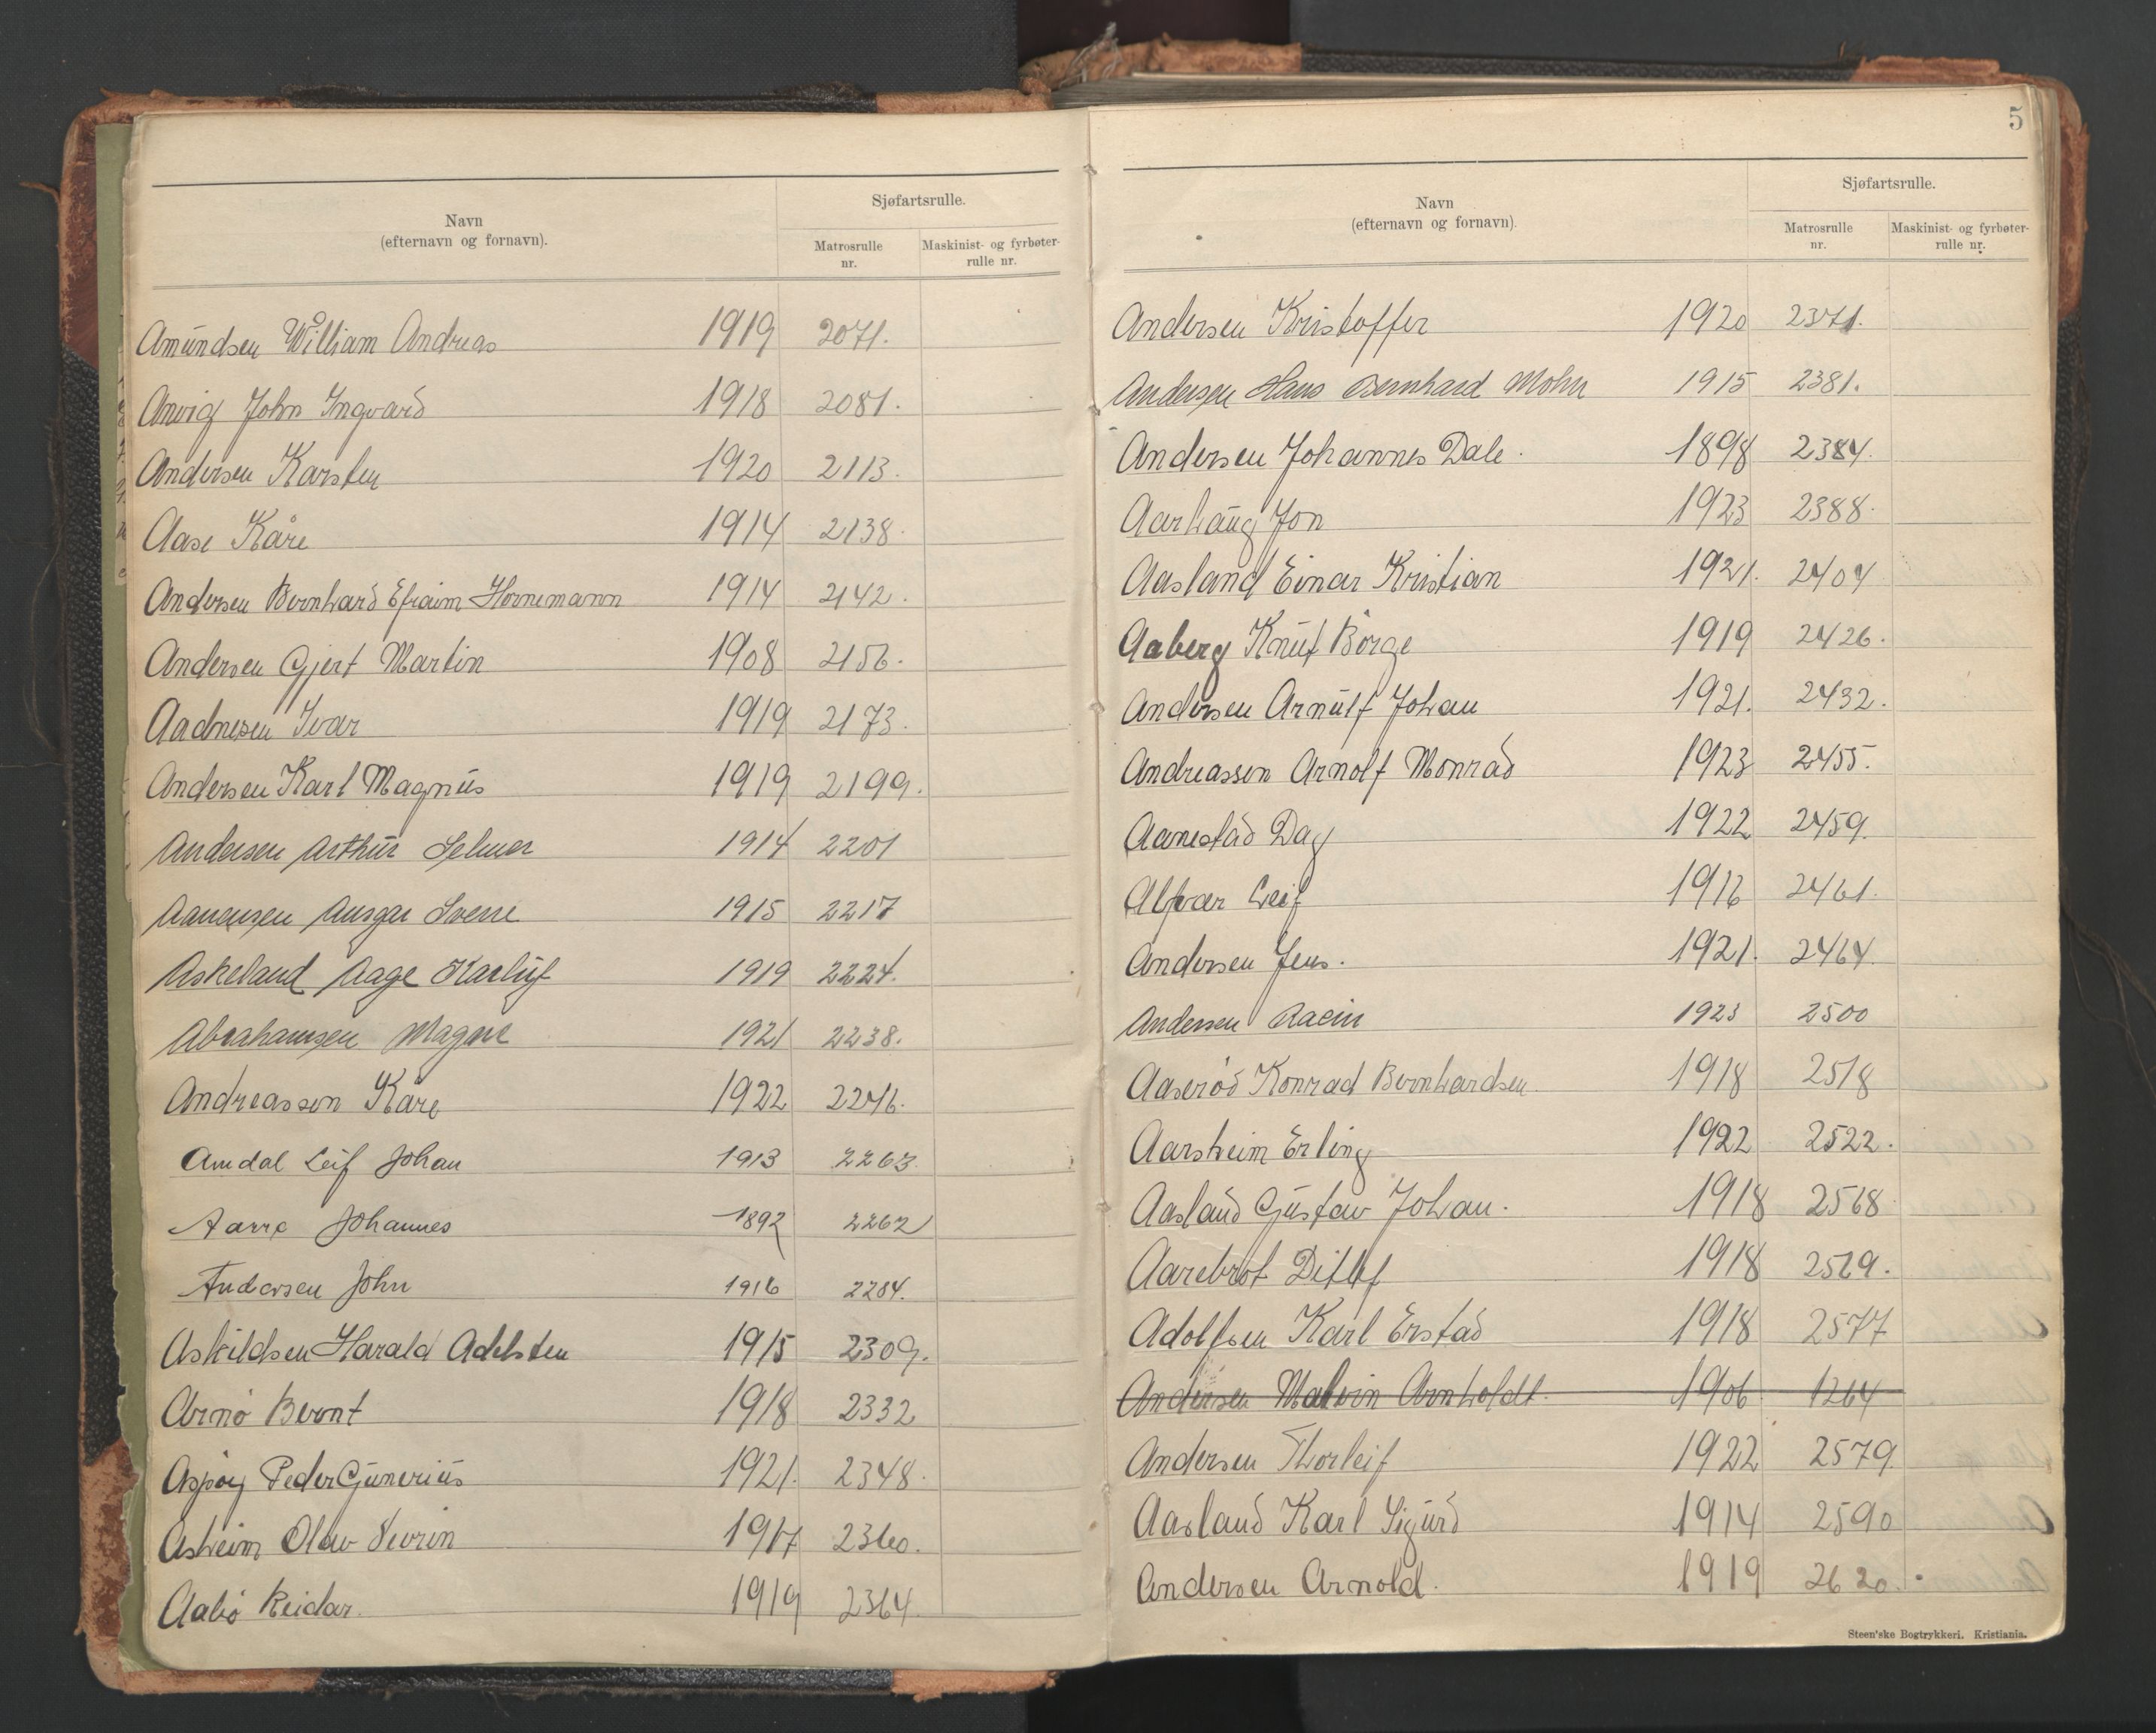 Navn
(efternavn og fornavn).
Sjøfartsrulle.
Matrosrulle
nr.
Maskinist- og fyrbøter-
rulle nr.
Amundsen William Andreas 1919 2071.
Anvig John Ingvard 1918 2081.
Andersen Karsten 1920 2113.
Aase Kåre 1914 2138.
Andersen Bernhard Efraim Hornemann 1914 2142.
Andersen Gjert Martin 1908 2156.
Aadnesen Ivar 1919 2173.
Andersen Karl Magnus 1919 2199.
Andersen Arthur Selmer 1914 2201
Aanensen Ansgar Sverre 1915 2217
Askeland Aage Karluf 1919 2224.
Abrahamsen Magne 1921 2238.
Andreassen Kåre 1922 2246.
Amdal Leif Johan 1913 2263.
Aarre Johannes 1892 2262
Andersen John 1916 2284.
Askildsen Harald Adelsten 1915 2309.
Arnø Bernt 1918 2332
Aspøy Peder Gunerius 1921. 2348.
Asheim Olav Sevrin 1917 2360.
Aabø Reidar. 1919 2364.
5
Navn
(efternavn og fornavn).
Sjøfartsrulle.
Matrosrulle
nr.
Maskinist- og fyrbøter-
rulle nr.
Andersen Kristoffer 1920 2371.
Andersen Hans Bernhard Mohn 1915 2381.
Andersen Johannes Dale. 1898 2384.
Aarhaug Jon 1923 2388.
Aasland Einar Kristian 1921. 2404
Aaberg Knut Børge 1919 2426.
Andersen Arnulf Johan 1921. 2432.
Andreassen Arnolf Monrad 1923 2455.
Aanestad Dag 1922 2459.
Leif 1916 2461.
Andersen Jens. 1921. 2464.
Andersen 1923 2500
Aaserød Konrad Bernhardsen. 1918 2518
Aarsheim Erling 1922 2522.
Aasland Gustav Johan. 1918 2568.
Aarebrot Ditlef 1918 2569.
Adolfsen Karl Erstad 1918 2577
Andersen Malvin Arnholdt. 1906. 1264
Andersen Thorleif 1922 2579.
Aasland Karl Sigurd 1914 2590
Andersen Arnold. 1919 2620.
Steen'ske Bogtrykkeri. Kristiania.